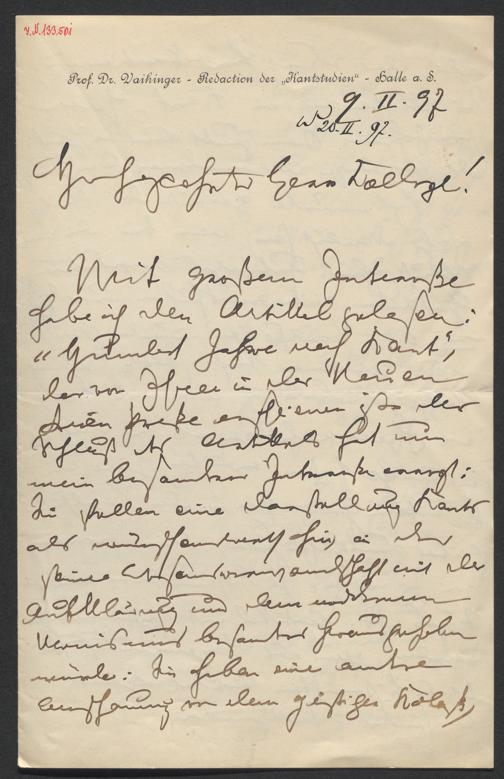 V.N.133.501
Prof. Dr. Vaihinger - Redaction der „Kantstudien“ - Halle a. S.
9. II. 97
20. II. 97.
Hochgeehrter Herr College!
Mit großem Interesse
habe ich den Artikel gelesen:
"Hundert Jahre nach Kant",
der von Ihnen in der Neuen
Freien Presse erschienen ist. Der
Schluß des Artikels hat nun
mein besonderes Interesse erregt:
Sie stellen eine Darstellung Kants
als wünschenswerth hin, in der
seine Wesensverwandtschaft mit der
Aufklärung und dem modernen
besonders hervorgehoben
würde. Sie haben eine andere
Anschauung von dem geistigen Koloß,